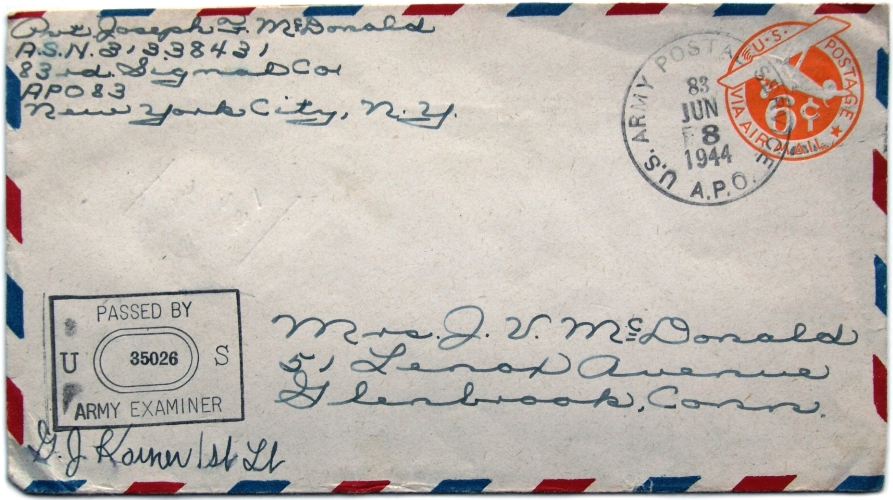 Pvt. Joseph F. McDonald
A.S.N. 31338431
83rd. Signal Co.
APO 83
New York City, N.Y.
U.S. ARMY POSTAL
A.P.O.
83
JUN
8
1944
U.S. POSTAGE
VIA AIR MAIL
6¢
PASSED BY
U 35026 S
ARMY EXAMINER
Mrs. J. V. McDonald
51 Lenox Avenue
Glenbrook, Conn.
1st Lt